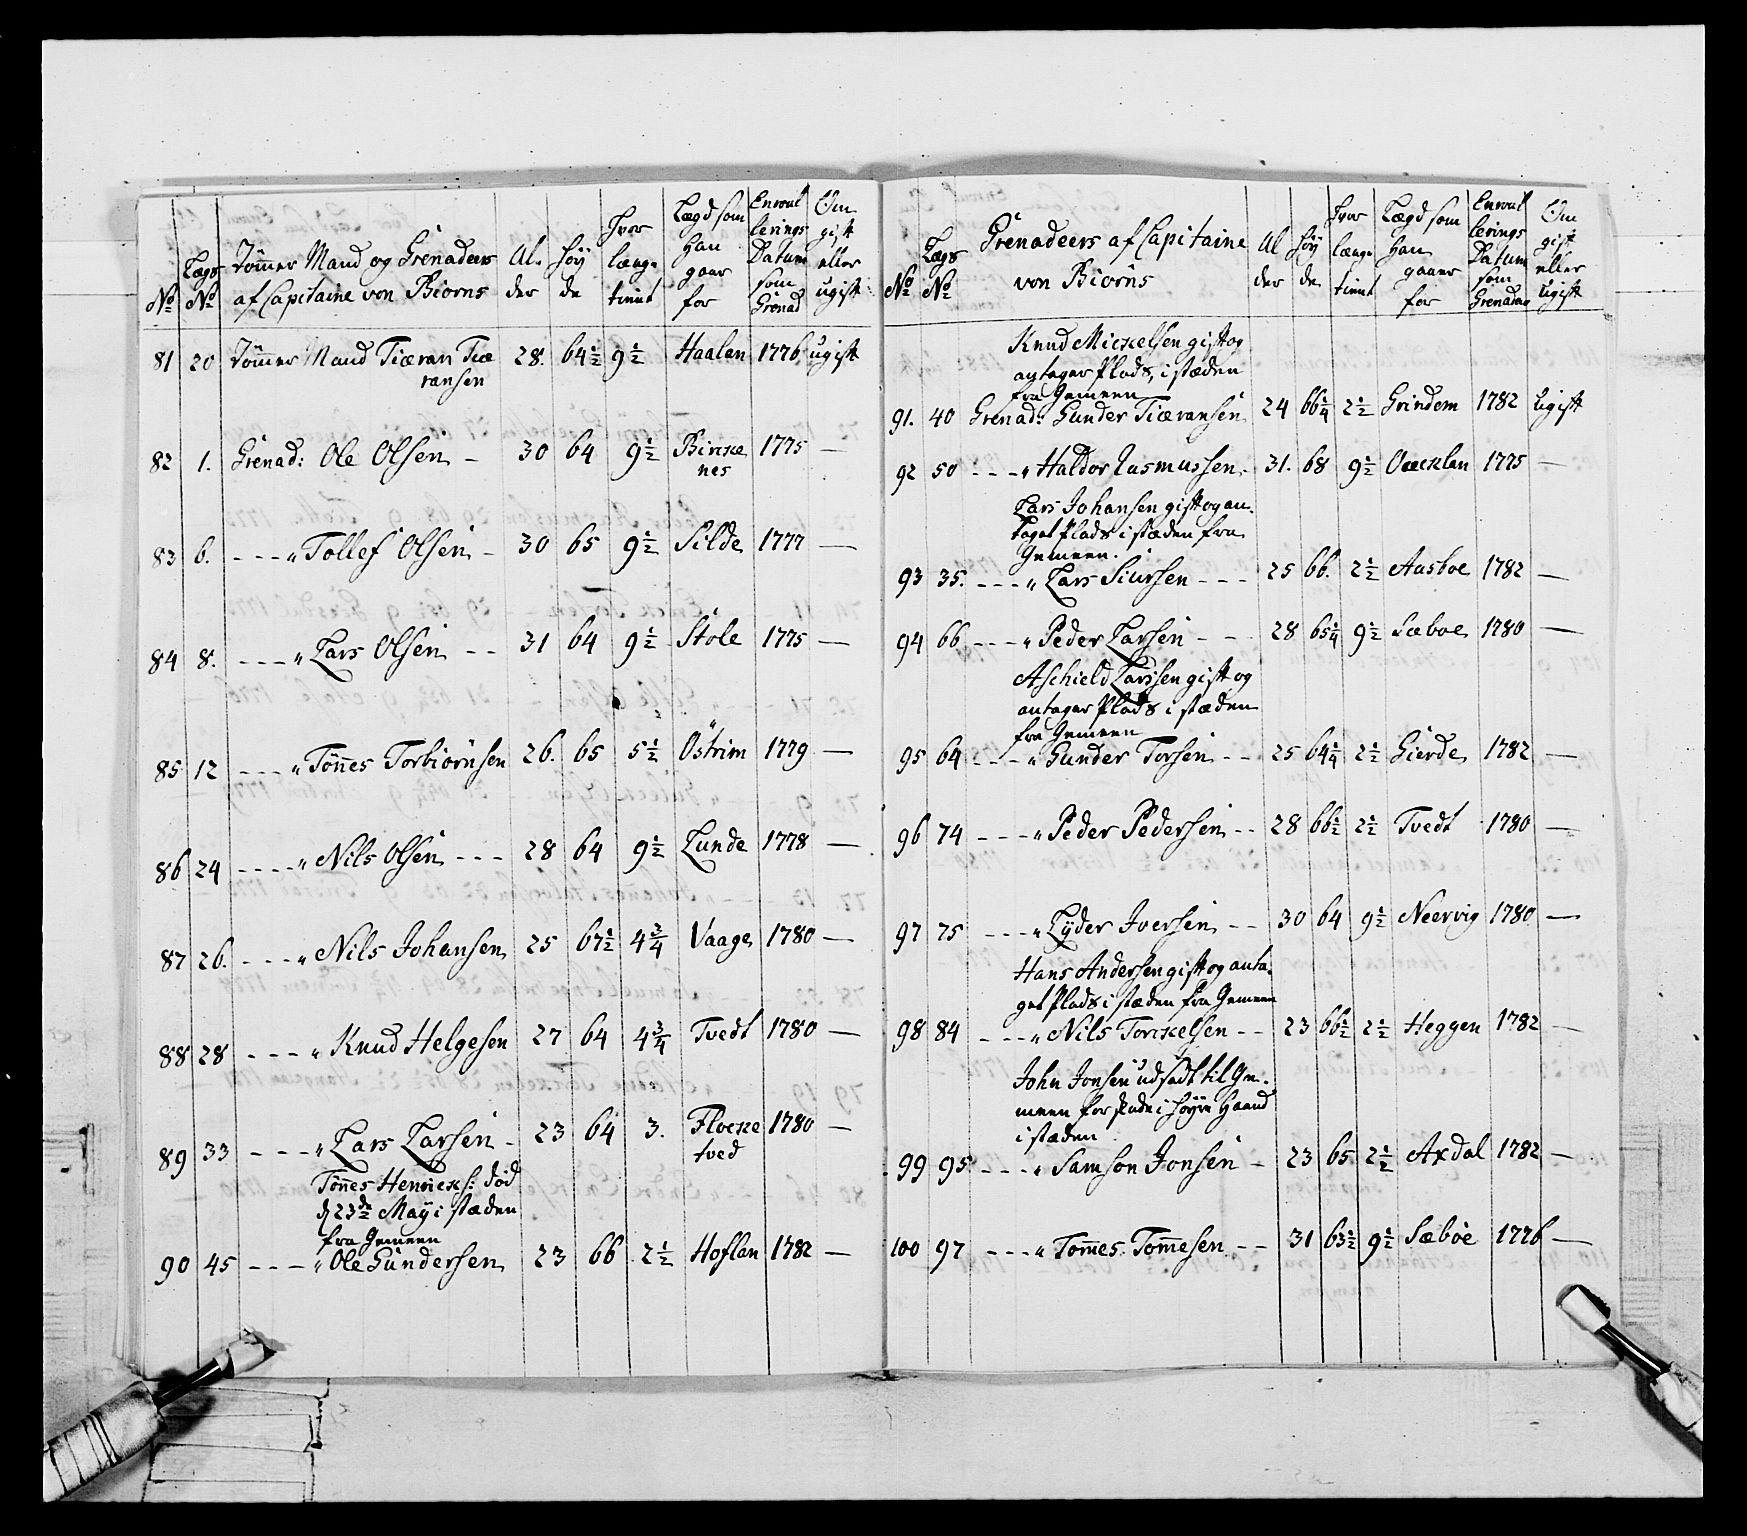 No
Lægs No
Tömmer Mand og Grenadeers af Capitaine von Biörns
Al. der
Höy de
Hvor længe tient
Lægd som han gaar for
Enroulerings Datum som Grenad
Om gift eller ugift
81 20 Tömmer Mand Tiæran Tiæ 28. 64½ 9½ Haalan 1776 ugift
ransen
82 1. Grenad: Ole Olsen - 30 64 9½ Birke 1775 —
nes
83 6. - - - „ Tollef Olsen - 30 65 9½ Silde 1777 —
84 8. - - - „ Lars Olsen - - 31 64 9½ Stole 1775 —
85 12 - - - „ Tönnes Torbiörnsen 26. 65 5½ Östrim 1779 —
86 24 - - - - „ Nils Olsen - - - 28 64 9½ Lunde 1778 —
87 26. - - - - „ Nils Johansen 25 67½ 4¾ Vaage 1780 —
88 28 - - - - „ Knud Helgesen 27 64 4¾ Tvedt 1780 —
89 33 - - - - „ Lars Larsen - 23 64 3. Floeke 1780 —
tved
Tönnes Henricks: död
d 23de May i stæden
fra Gemeen
90 45 - - - - „ Ole Gundersen 23 66 2½ Hoflan 1782 —
No
Lægs No
Grenadeers af Capitaine von Biörns
Al der
Höy de
Hvor længe tient
Lægd som han gaaer for
Enroulerings Datum som Grenadeer
Om gift eller ugift
Knud Mickelsen gift og
antager Plads, i stæden
fra Gemeen
91. 40 Grenad: Gunder Tiæransen 24 66¼ 2½ Grindem 1782 ugift
92 50 - - - „ Haldor Rasmussen 31. 68 9½ 1775 —
Lars Johansen gift og an-
taget Plads i stæden fra
Gemeen.
93 35. - - - „ Lars Siursen - - - 25 66. 2½ Aasboe 1782 —
94 66 - - - „ Peder Larsen - - - 28 65¼ 9½ Sæboe 1780 —
Aschield Larssen gift og
antager Plads i stæden
fra Gemeen
95 64 - - - „ Gunder Torsen - - 25 64¼ 2½ Gierde 1782 —
96 74 - - - „ Peder Pedersen - - 28 66½ 2½ Tvedt 1780 —
97 75 - - - „ Lyder Iversen - - 30 64 9½ Neervig 1780 —
Hans Andersen gift og anta-
get Plads i stæden fra Gemeen
98 84 - - - „ Nils Torckelsen - - 23 66½ 2½ Heggen 1782 —
John Jonsen udsadt til Ge-
meen for skade i höyre Haand
i stæden
99 95 - - - - „ Samson Jonsen - 23 65 2½ Axdal 1782 —
100 97 - - - „ Tomes Tomesen - - 31 63½ 9½ Sæböe 1776 —